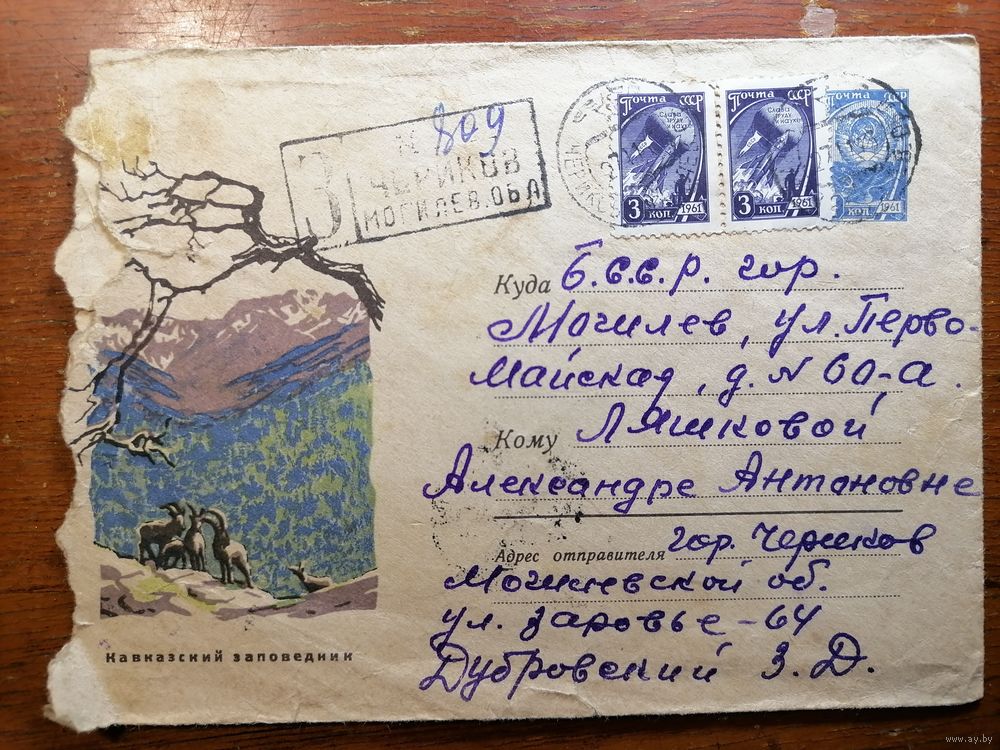 Почта СССР
Слава труду и науке
3 коп. 1961
Почта СССР
Слава труду и науке
3 коп. 1961
Почта СССР
коп. 1961
З
N 809
ЧЕРИКОВ
МОГИЛЕВ. ОБЛ
Куда Б.С.С.Р. гор.
Могилев, ул. Перво-
Майская, д. N 60-а.
Кому Ляшковой
Александре Антановне
Адрес отправителя гор. Чериков
Могилевской об.
ул. Заровье-64
Дубровский З. Д.
Кавказский заповедник
www.ay.by